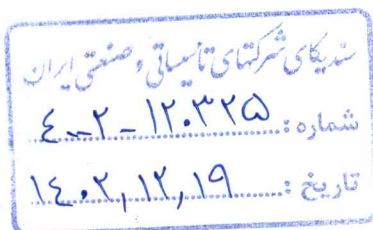 سندیکای شرکتهای تأسیساتی و صنعتی ایران
شماره: ۴۰۰۲-۱۲۰۳۲۵
تاریخ: ۱۴۰۲,۱۲,۱۹